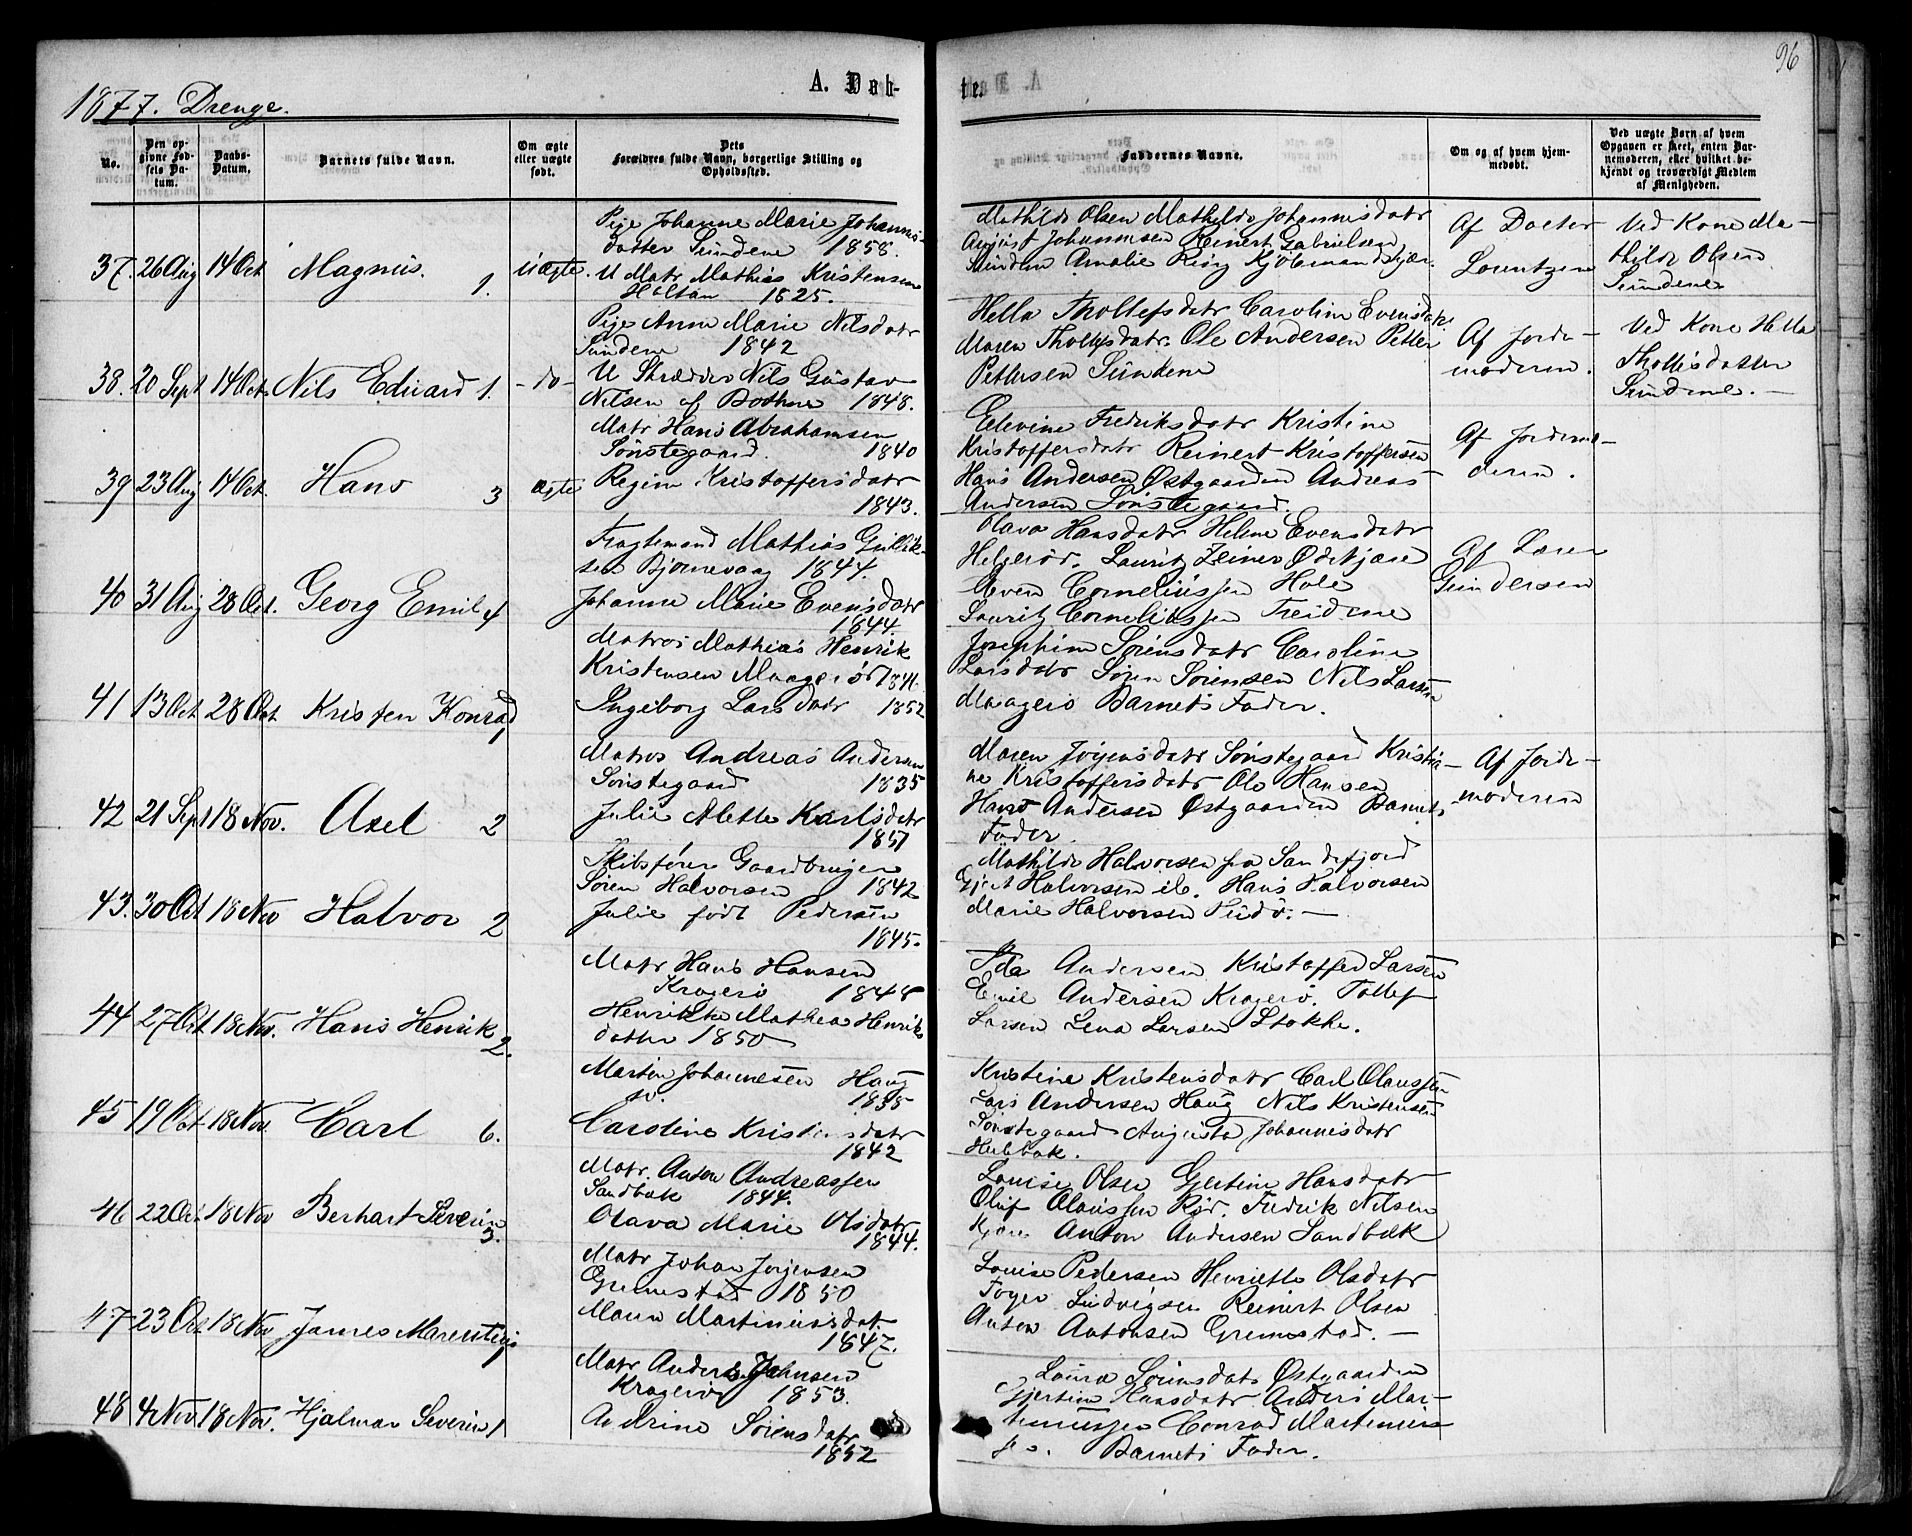 96
1877. Drenge.
A. Døb-
te.
No.
Den op-
givne Fød-
sels Da-
tum.
Daabs-
Datum.
Barnets fulde Navn.
Om ægte
eller uægte
født.
Dets
Forældres fulde Navn, borgerlige Stilling og
Opholdssted.
Faddernes Navne.
Om og af hvem hjem-
medøbt.
Ved uægte Børn af hvem
Opgaven er skeet, enten Bar-
nemoderen, eller hvilket be-
kjendt og troværdigt Medlem
af Menigheden.
37. 26 Aug 14 Oct Magnus. 1. Uægte.
Pige Johanne Marie Johannis-
datter Sundene 1858.
U Matr Mathias Kristensen
Holtan 1825.
Mathilde Olsen Mathilde Johannisdatr
August Johannesen Reinert Gabrielsen
Sundene Amalie Ring Kjøbmandskjær.
Af Doctor
Lorentzen
Ved Kone Ma-
thilde Olsen
Sundene
38. 20 Sept 14 Oct Nils Edvard 1. - do -
Pige Anne Marie Nilsdatr
Sundene 1842
U Skrædder Nils Gustav
Nilsen af Bothne 1848.
Hella Thollefsdatr Caroline Evensdatr
Maren Thollefsdatr. Ole Andersen Petter
Pettersen Sundene
Af Jorde-
moderen.
Ved Kone Hella
Thollisdatter
Sundene. -
39 23 Aug 14 Oct. Hans 3 ægte
Matr Hans Abrahamsen
Sønstegaard. 1840
Regine Kristoffersdatr
1843.
Edevine Fredriksdatr Kristine
Kristoffersdatr Reinert Kristoffersen
Hans Andersen Østgaarden Andreas
Andersen Sønstegaard.
Af Jordemo-
deren.
40 31 Aug 28 Oct. Georg Emil 4
Fragtemand Mathias Gullik-
sen Bjørnevaag 1844.
Johanne Marie Evensdatr
1844.
Olava Hansdatr Helene Evensdatr
Helgerød. Lauritz Zeiner Ødekjære
Even Corneliussen Hole
Lauritz Corneliussen Treidene
Af Lærer
Gundersen
41 13 Oct 28 Oct Kristen Konrad 1
Matros Mathias Henrik
Kristensen Maagerø 1846
Ingeborg Larsdatr 1852
Josephine Sørensdatr Caroline
Larsdatr Søren Sørensen Nils Larsen
Maagerø Barnets Fader.
42 21 Sept 18 Nov. Axel 2
Matros Andreas Andersen
Sønstegaard 1835
Julie Alette Karlsdatr
1851
Maren Jørgensdatr Sønstegaard Kristia-
ne Kristoffersdatr Ole Hansen
Hans Andersen Østgaarden Barnets
Fader.
Af Jorde-
moderen
43. 30 Oct 18 Nov Halvor 2
Skibsfører Gaardbruger
Søren Halvorsen 1842
Julie født Pedersen
1845.
Mathilde Halvorsen fra Sandefjord
Gjert Halvorsen ib. Hans Halvorsen
Marie Halvorsen Vindø. -
44 27 Oct 18 Nov. Hans Henrik 2.
Matr Hans Hansen
Kragerø 1848
Henrikke Mathea Henriks
datter 1850
Ida Andersen Kristoffer Larsen
Emil Andersen Kragerø. Tollef
Larsen Lena Larsen Stokke.
45 19 Oct 18 Nov. Carl 6.
Martin Johannesen Haug
sv. 1835
Caroline Kristensdatr
1842
Kristine Kristensdatr Carl Olaussen
Lars Andersen Haug Nils Kristensen
Sønstegaard Augusta Johannisdatr
Hulebak.
46 22 Oct 18 Nov Berhart Severin 3.
Matr. Anton Andreassen
Sandbæk 1844.
Olava Marie Olsdatr
1844.
Louise Olsen Gjertine Hansdatr
Oluf Olaussen Rør. Fredrik Nilsen
Kjære Anton Andersen Sandbæk
47 23 Oct 18 Nov James Marentius 1
Matr Johan Jørgensen
Grimestad 1850
Maren Martiniusdat.
1847.
Louise Pedersen Henriette Olsdatr
Torger Ludvigsen Reinert Olsen
Anton Antonsen Grimestad. -
48 4 Nov. 18 Nov. Hjalmar Severin 1
Matr Anders Johnsen
Kragerø 1853.
Andrine Sørensdatr
1852
Laura Sørensdatr Østgaarden
Gjertine Hansdatr Anders Mar-
tinussen Conrad Martinius-
sen. Barnets Fader.